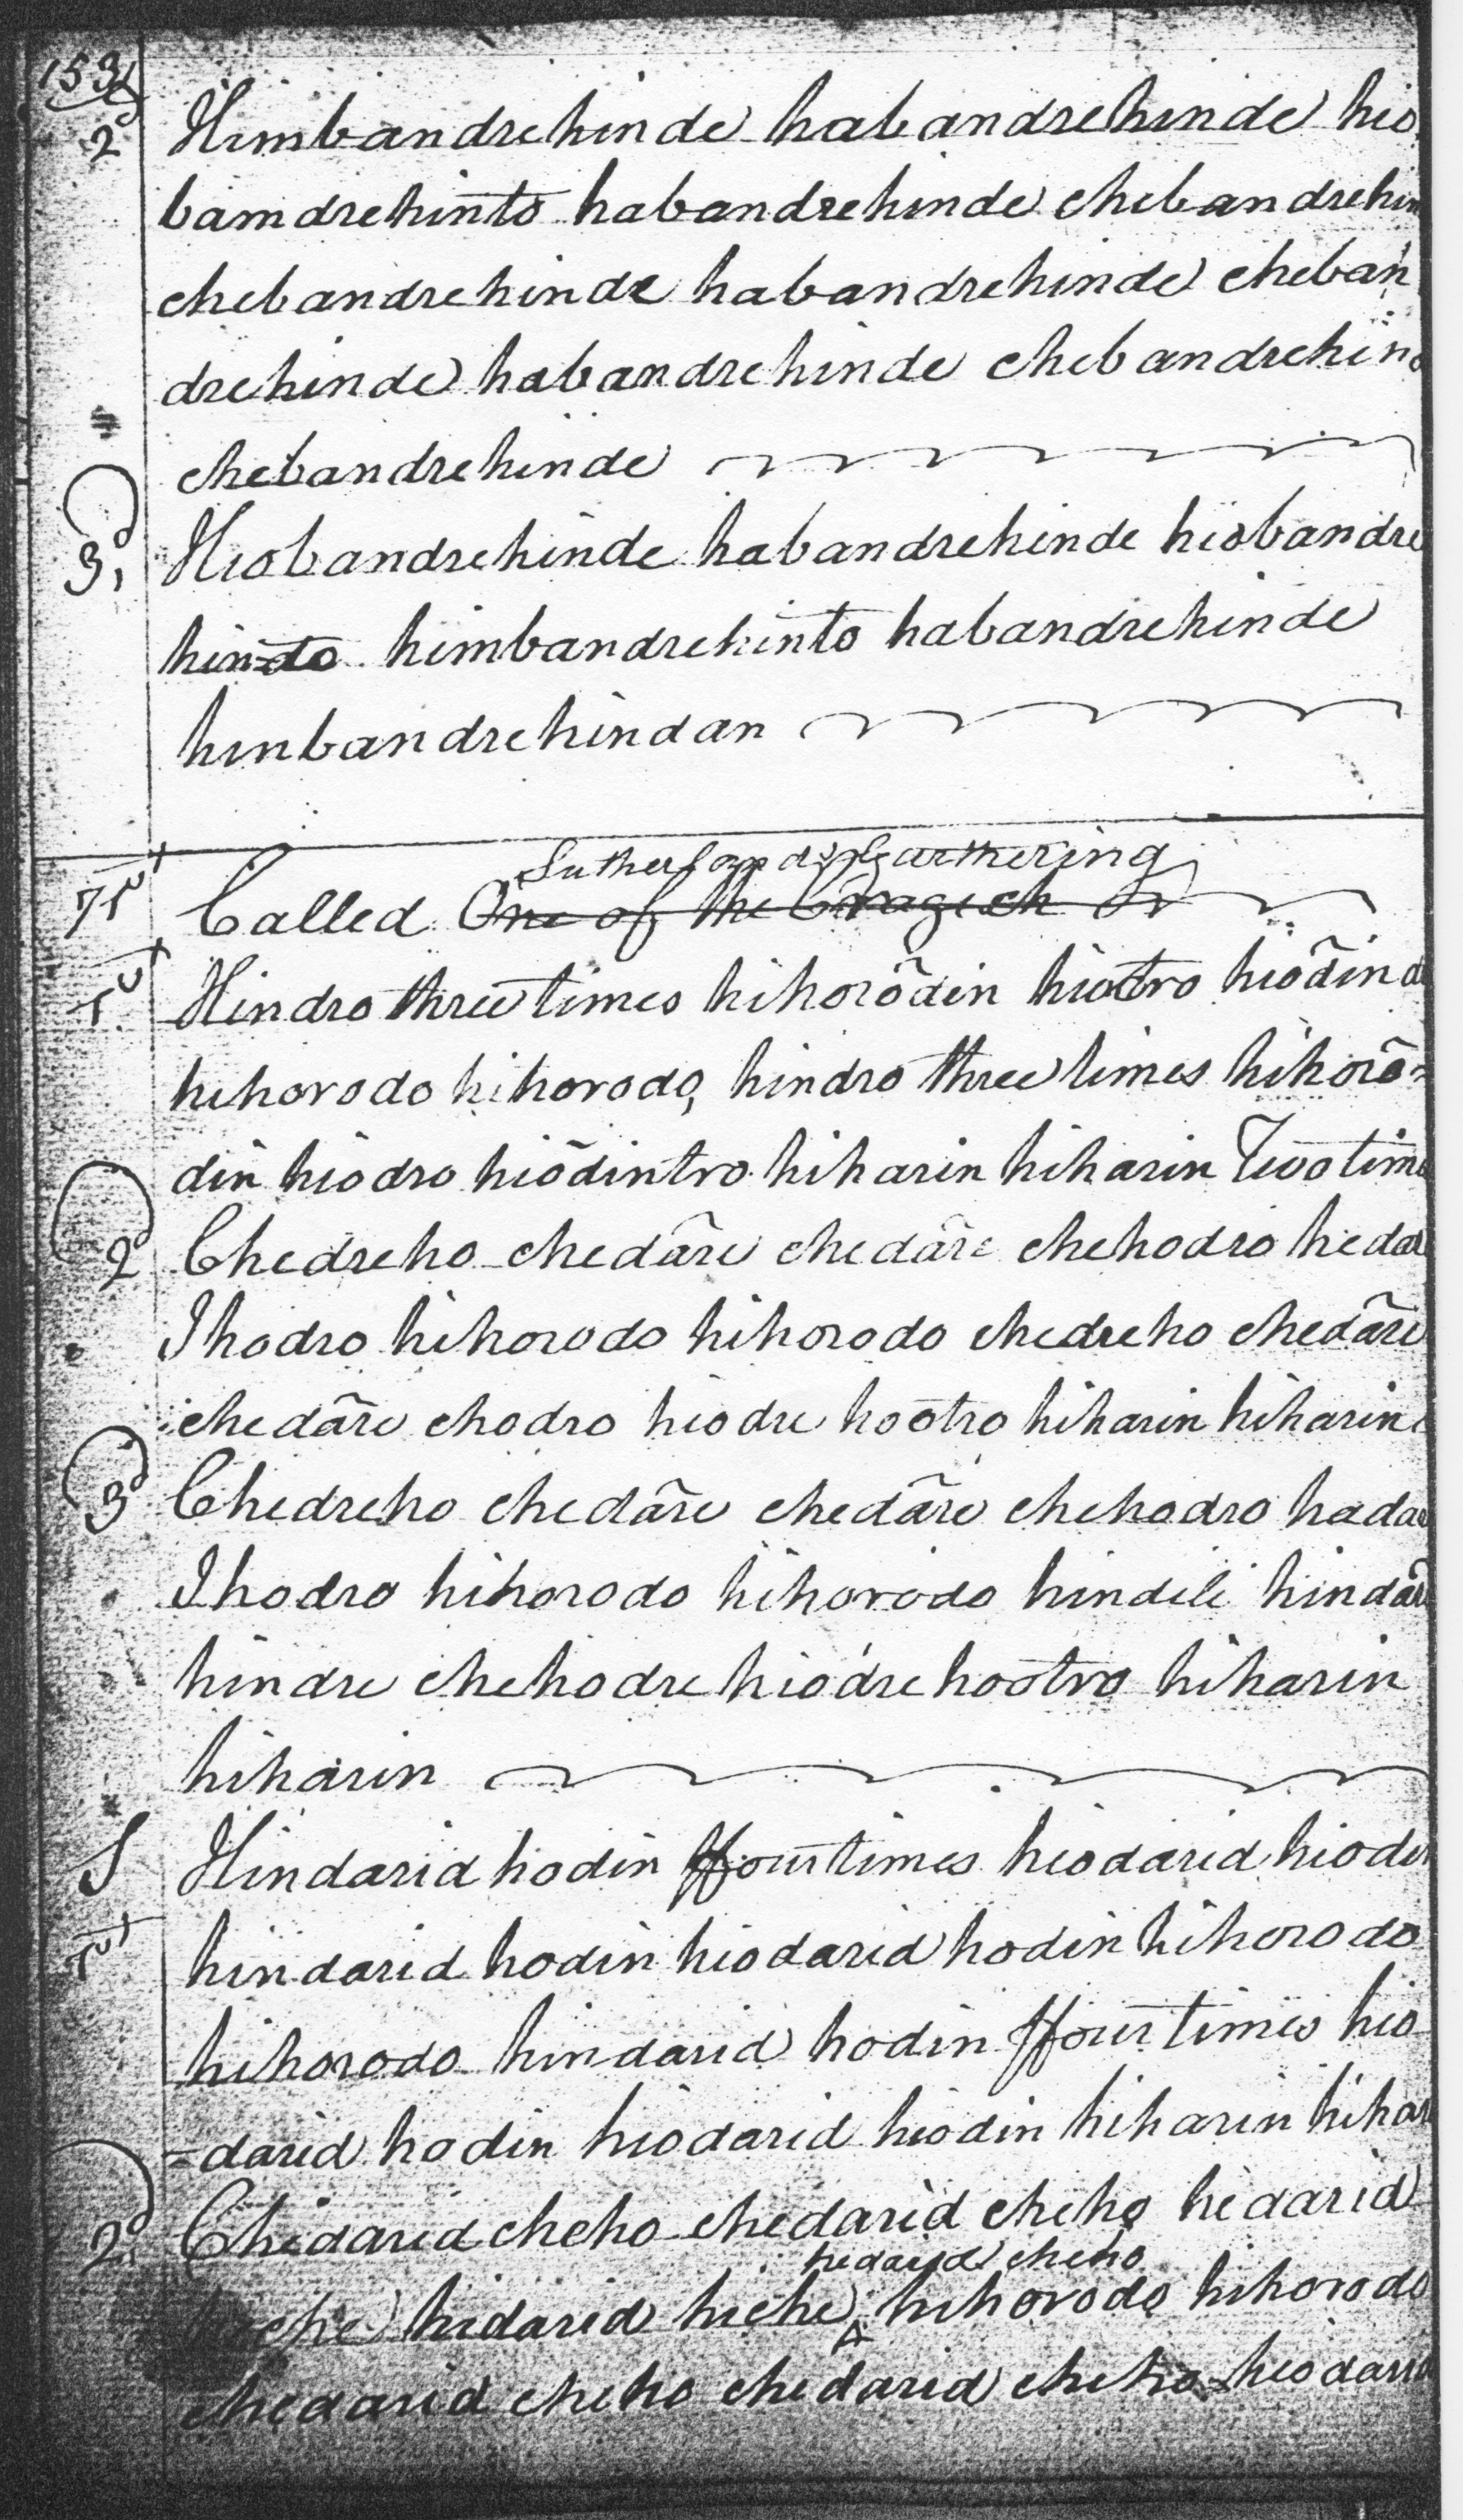 153
2d Himbandrehinde habandrehinde hio
bamdrehinto habandrehinde chebandrehin
chebandrehinde habandrehinde cheban
drehinde habandrehinde chebandrehin
chebandrehinde
3d, Hiobandrehinde habandrehinde hiobandre
hindo himbandrehinto habandrehinde
hinbandrehindan
Sutherland's Garthering
Called One of the Cragich or
Hindro three times hihorõdin hiotro hiõdin
hihorodo hihorodo, hindro three times hihorõ=
din hiodro hiõdintro hiharin hiharin Two time
2d Chedreho chedãre chedãre chehodro hedar
Ihodro hihorodo hihorodo chedreho chedãre
chedãre chodro hiodre hootro hiharin hiharin
3d Chedreho chedãre chedãre chehodro hadar
Ihodro hihorodo hihorodo hindili hindãr
hindre chehodre hiodre hootro hiharin
hiharin
S Hindarid hodin ffour times hiodarid hiodin
hindarid hodin hiodarid hodin hihorodo
hihorodo hindarid hodin ffour times hio
=darid hodin hiodarid hiodin hiharin hihar
2d, Chedarid cheho chedarid cheho hedarid
hedarid cheho
hidarid hiche hihorodo hihorodo
chedarid cheho chedarid cheho hiodarid